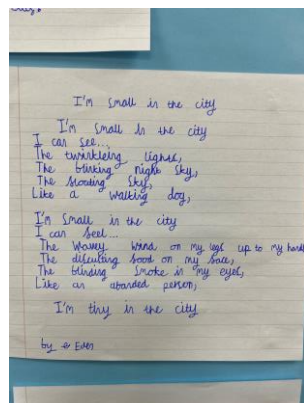 I'm small in the city
I'm small in the city
I can see...,
The twinkleing lights,
The blinking night sky,
The sky,
Like a walking dog,
I'm small in the city
I can feel...
The wavey wind on my legs up to my
The food on my face,
The blinding smoke in my eyes,
Like an person,
I'm tiny in the city
by Evan